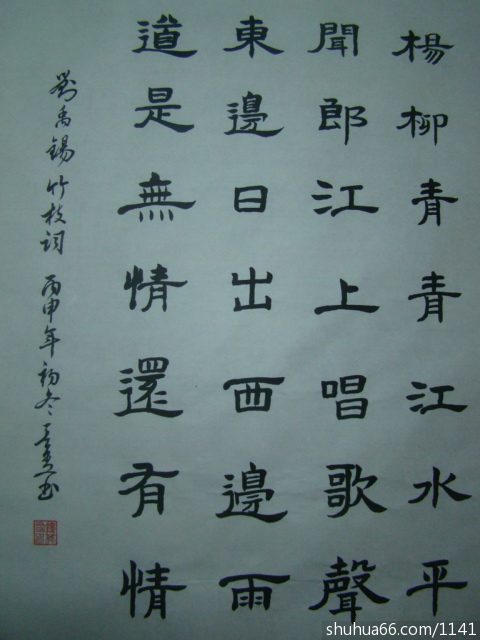 楊柳青青江水平
聞郎江上唱歌聲
東邊日出西邊雨
道是無情還有情
劉禹錫竹枝詞 丙申年初冬
shuhua66.com/1141